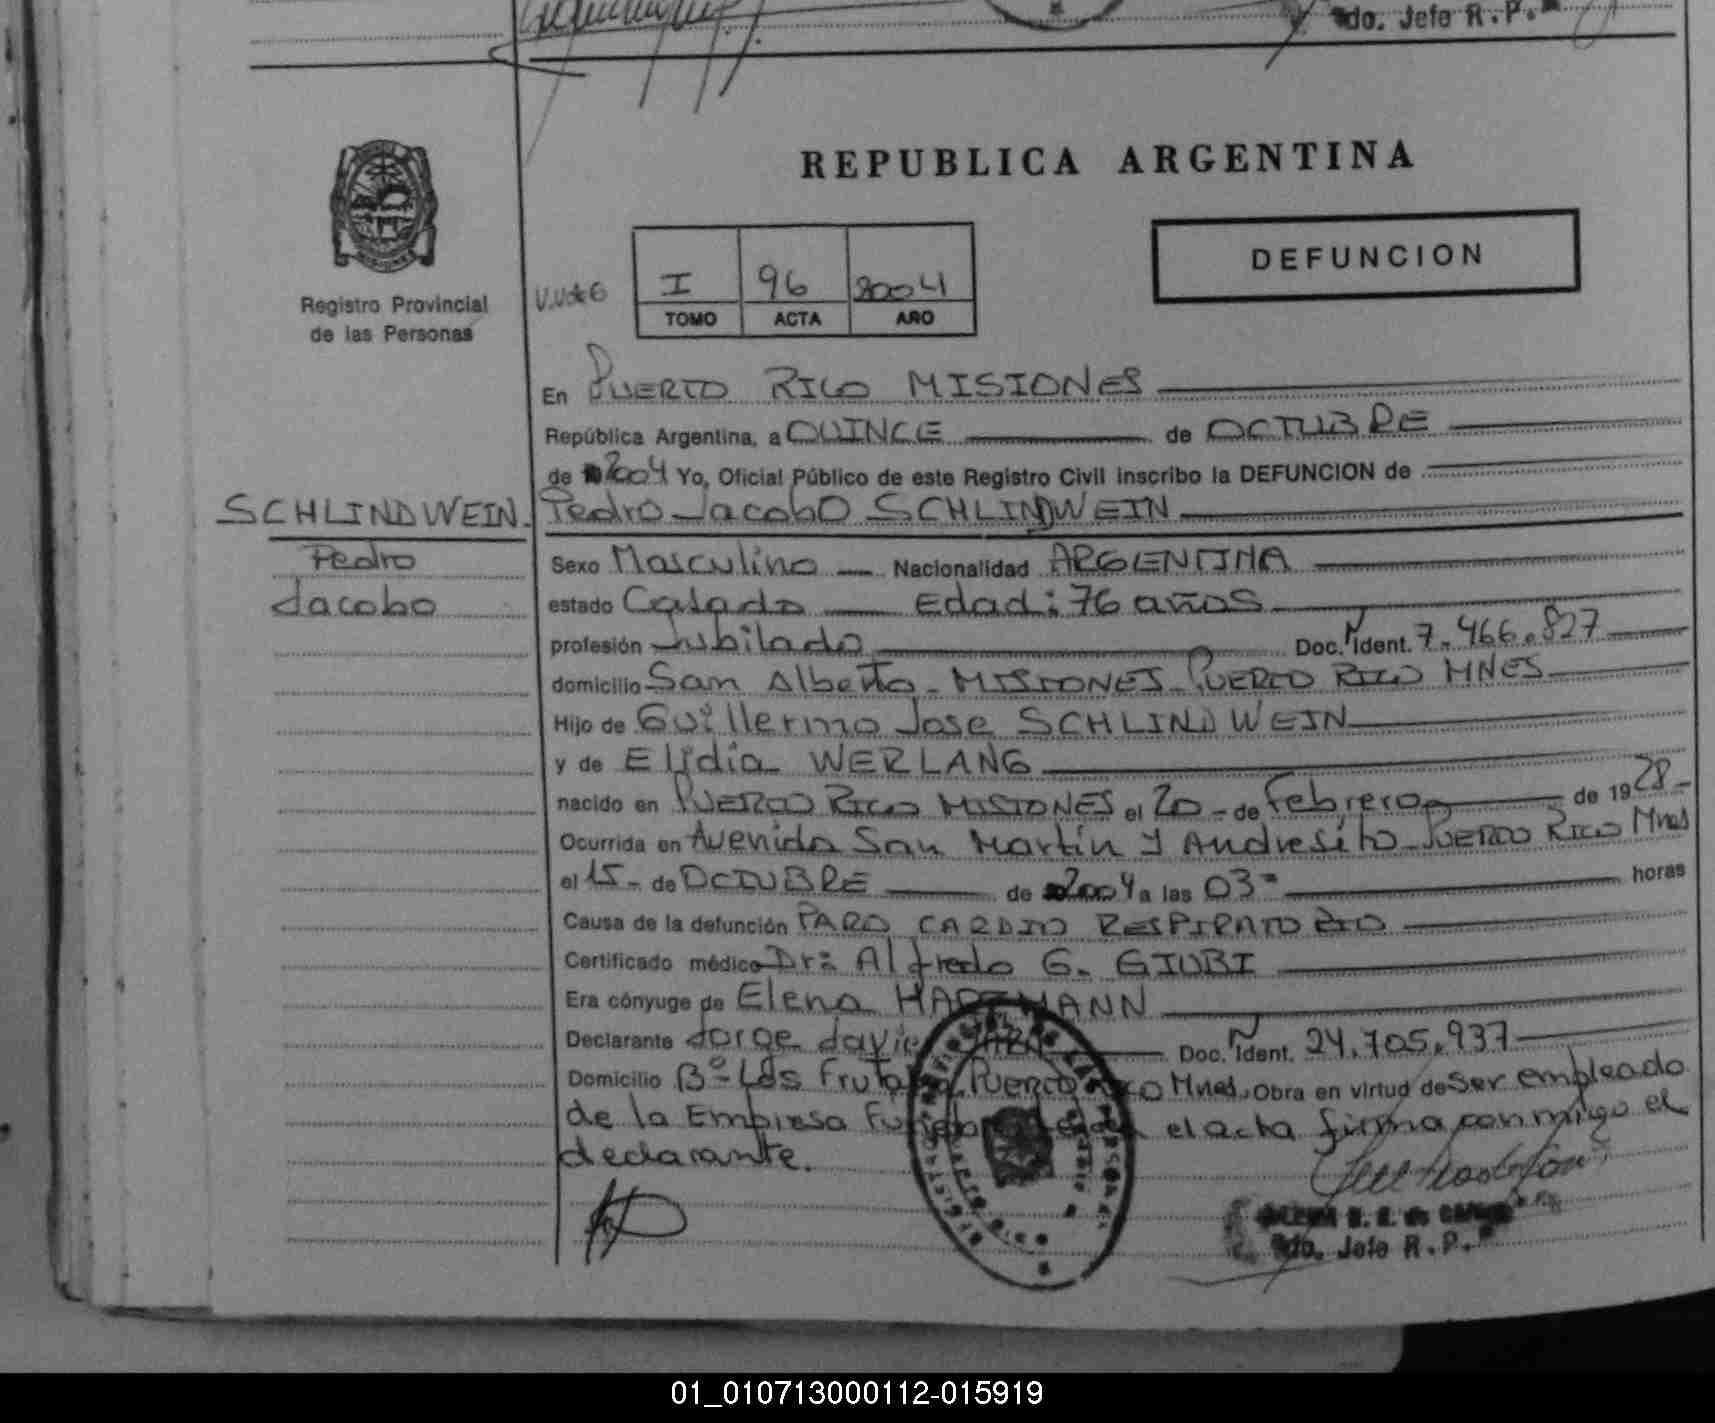 do. Jefe R.P.
REPUBLICA ARGENTINA
DEFUNCION
I 96 2004
TOMO ACTA AÑO
Registro Provincial
de las Personas
En PUERTO RICO MISIONES
República Argentina, a QUINCE de OCTUBRE
de 2004 Yo, Oficial Público de este Registro Civil inscribo la DEFUNCION de
SCHLINDWEIN. Pedro Jacobo SCHLINDWEIN
Pedro
Jacobo
Sexo Masculino Nacionalidad ARGENTINA
estado Casado Edad: 76 años
profesión Jubilado Doc. N Ident. 7.466.827
domicilio San Alberto - MISIONES - PUERTO RICO MNES
Hijo de Guillermo Jose SCHLINDWEIN
y de Elidia WERLANG
nacido en PUERTO RICO MISIONES el 20 - de Febrero de 1928-
Ocurrida en Avenida San Martin Y Andresito - PUERTO RICO Mnes
el 15- de OCTUBRE de 2004 a las 03= horas
Causa de la defunción PARO CARDIO RESPIRATORIO
Certificado médico Dr: Alfredo G. GIUBI
Era cónyuge de Elena HARTMANN
Declarante Jorge Javier Doc. N Ident. 24.705.937
Domicilio Bº Los PUERTO RICO Mnes. Obra en virtud de ser empleado
de la Empresa el acta firma conmigo el
declarante.
do. Jefe R.P.
01_010713000112-015919